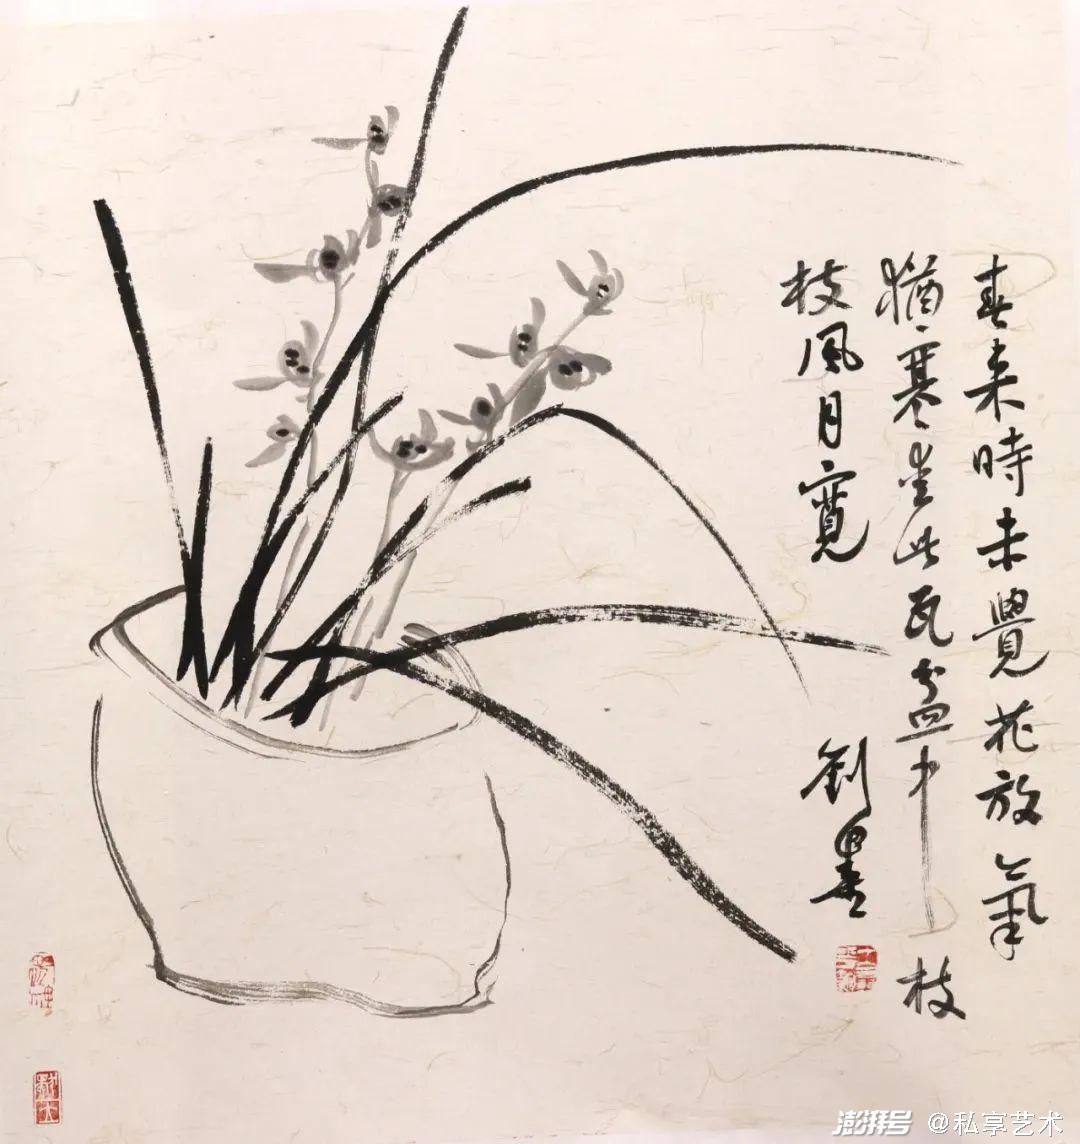 春来時未覺花放氣
猶寒坐此瓦盆中枝
枝風月寬
劉墨
澎湃号 @私享艺术